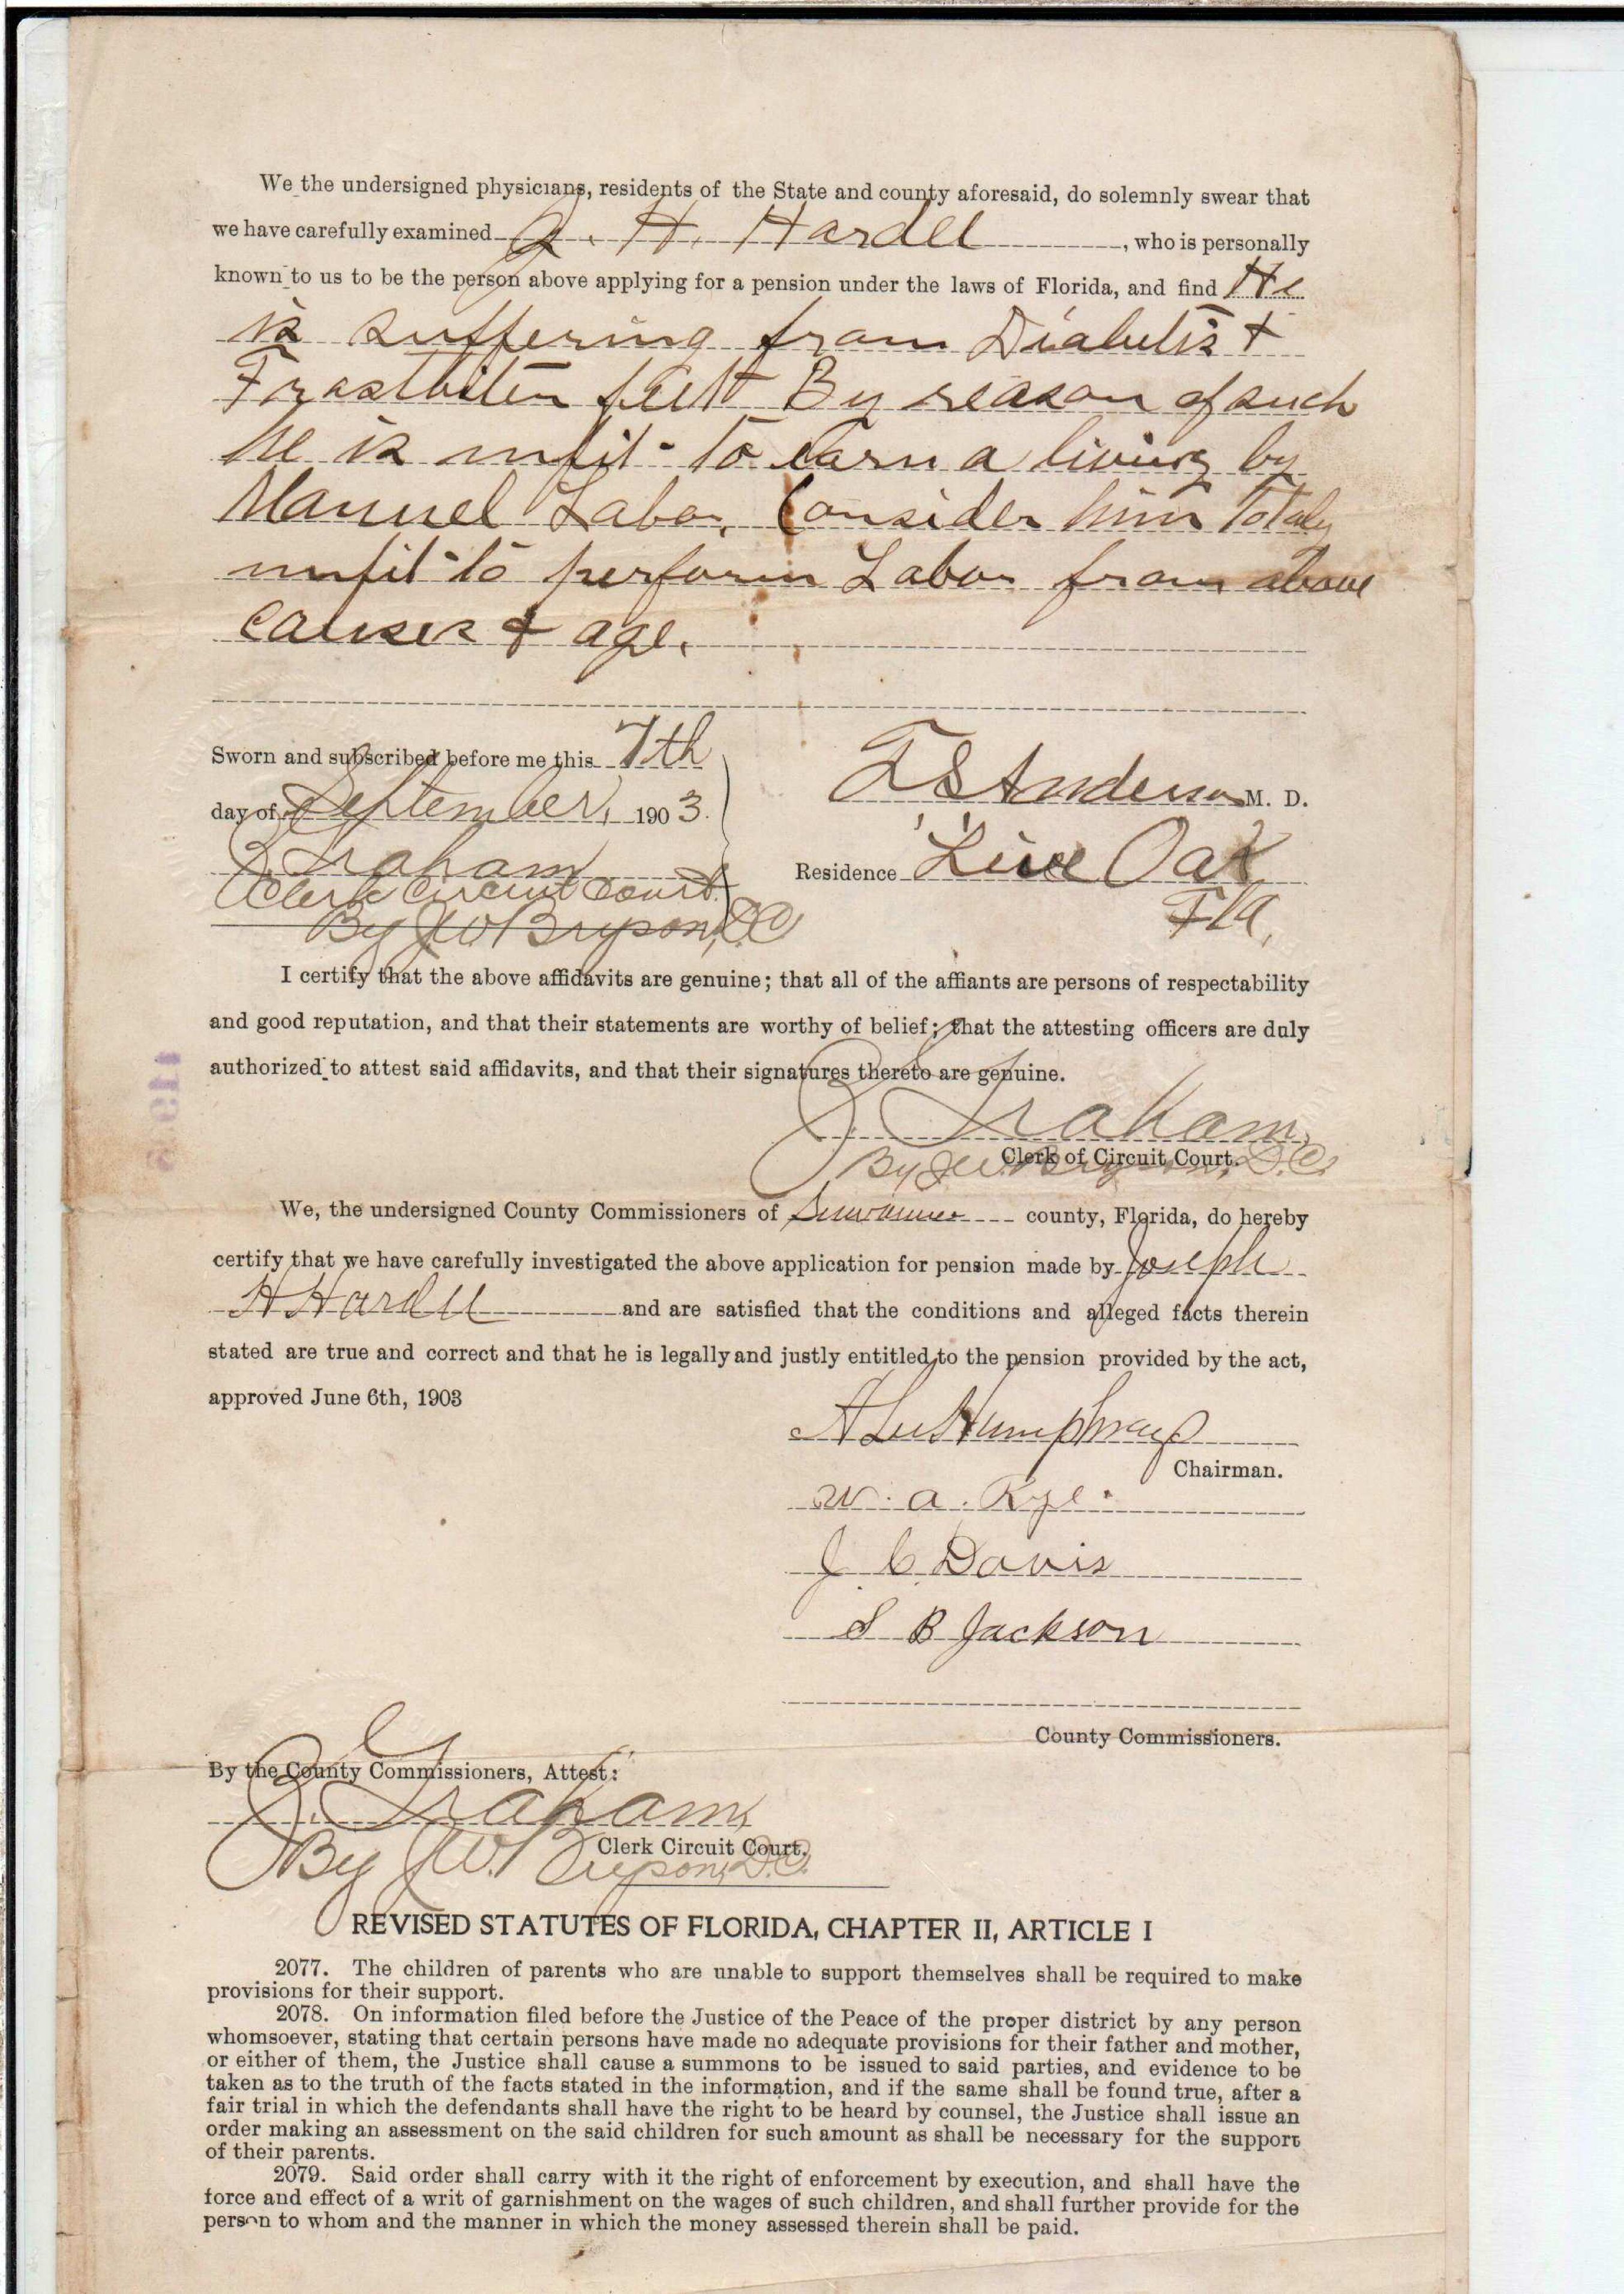 We the undersigned physicians, residents of the State and county aforesaid, do solemnly swear that
we have carefully examined J. H. Hardee, who is personally
known to us to be the person above applying for a pension under the laws of Florida, and find He
is suffering from Diabetis &
Frostbiten feet By reason of such
he is unfit to Earn a living by
Manuel Labor, Consider him Totaly
unfit to perform Labor from above
causes & age.
Sworn and subscribed before me this 7th
day of September, 1903.
J. Graham
Clerk Circuit Court
By J W Bryson, D.C.
T S Anderson M. D.
Residence Live Oak
Fla,
I certify that the above affidavits are genuine; that all of the affiants are persons of respectability
and good reputation, and that their statements are worthy of belief; that the attesting officers are duly
authorized to attest said affidavits, and that their signatures thereto are genuine.
J. Graham,
Clerk of Circuit Court.
By J W. Bryson, D.C.
We, the undersigned County Commissioners of Suwannee county, Florida, do hereby
certify that we have carefully investigated the above application for pension made by Joseph
H Hardee and are satisfied that the conditions and alleged facts therein
stated are true and correct and that he is legally and justly entitled to the pension provided by the act,
approved June 6th, 1903
A Lee Humphreys
Chairman.
W. A. Kyle.
J. C. Davis
S B Jackson
County Commissioners.
By the County Commissioners, Attest:
J. Graham,
Clerk Circuit Court.
By J W. Bryson, D.C.
REVISED STATUTES OF FLORIDA, CHAPTER II, ARTICLE I
2077. The children of parents who are unable to support themselves shall be required to make
provisions for their support.
2078. On information filed before the Justice of the Peace of the proper district by any person
whomsoever, stating that certain persons have made no adequate provisions for their father and mother,
or either of them, the Justice shall cause a summons to be issued to said parties, and evidence to be
taken as to the truth of the facts stated in the information, and if the same shall be found true, after a
fair trial in which the defendants shall have the right to be heard by counsel, the Justice shall issue an
order making an assessment on the said children for such amount as shall be necessary for the support
of their parents.
2079. Said order shall carry with it the right of enforcement by execution, and shall have the
force and effect of a writ of garnishment on the wages of such children, and shall further provide for the
person to whom and the manner in which the money assessed therein shall be paid.